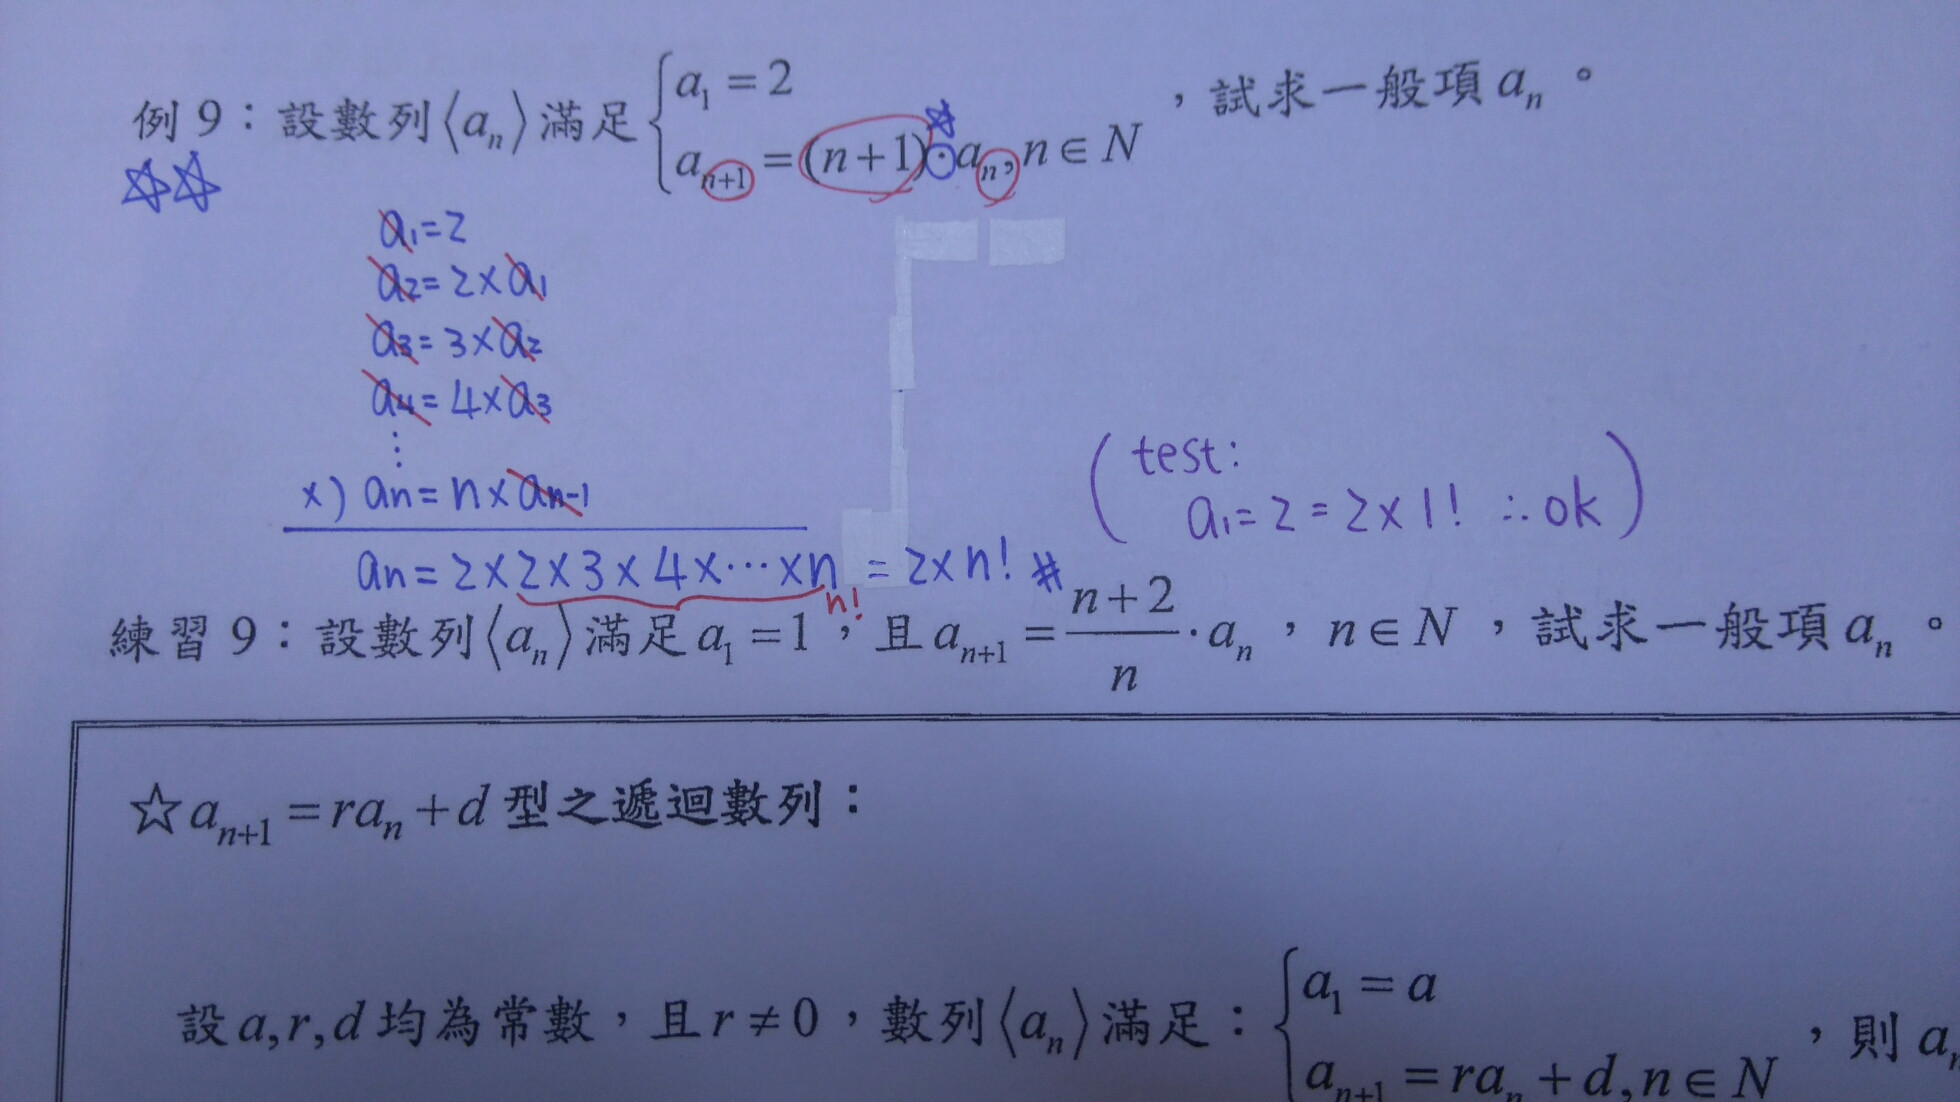 例 9：設數列⟨aₙ⟩滿足{a₁ = 2
aₙ₊₁ = (n+1)·aₙ, n∈N ，試求一般項 aₙ。
a₁=2
a₂=2×a₁
a₃=3×a₂
a₄=4×a₃
⋮
×) aₙ=n×aₙ₋₁
(test:
a₁=2=2×1! ∴ok)
aₙ=2×2×3×4×⋯×n =2×n! #
n!
練習 9：設數列⟨aₙ⟩滿足 a₁ =1，且 aₙ₊₁ = (n+2)/n · aₙ，n∈N，試求一般項 aₙ。
☆aₙ₊₁ = raₙ + d 型之遞迴數列：
設 a,r,d 均為常數，且 r≠0，數列⟨aₙ⟩滿足：{a₁ = a
aₙ₊₁ = raₙ + d, n∈N ，則 aₙ